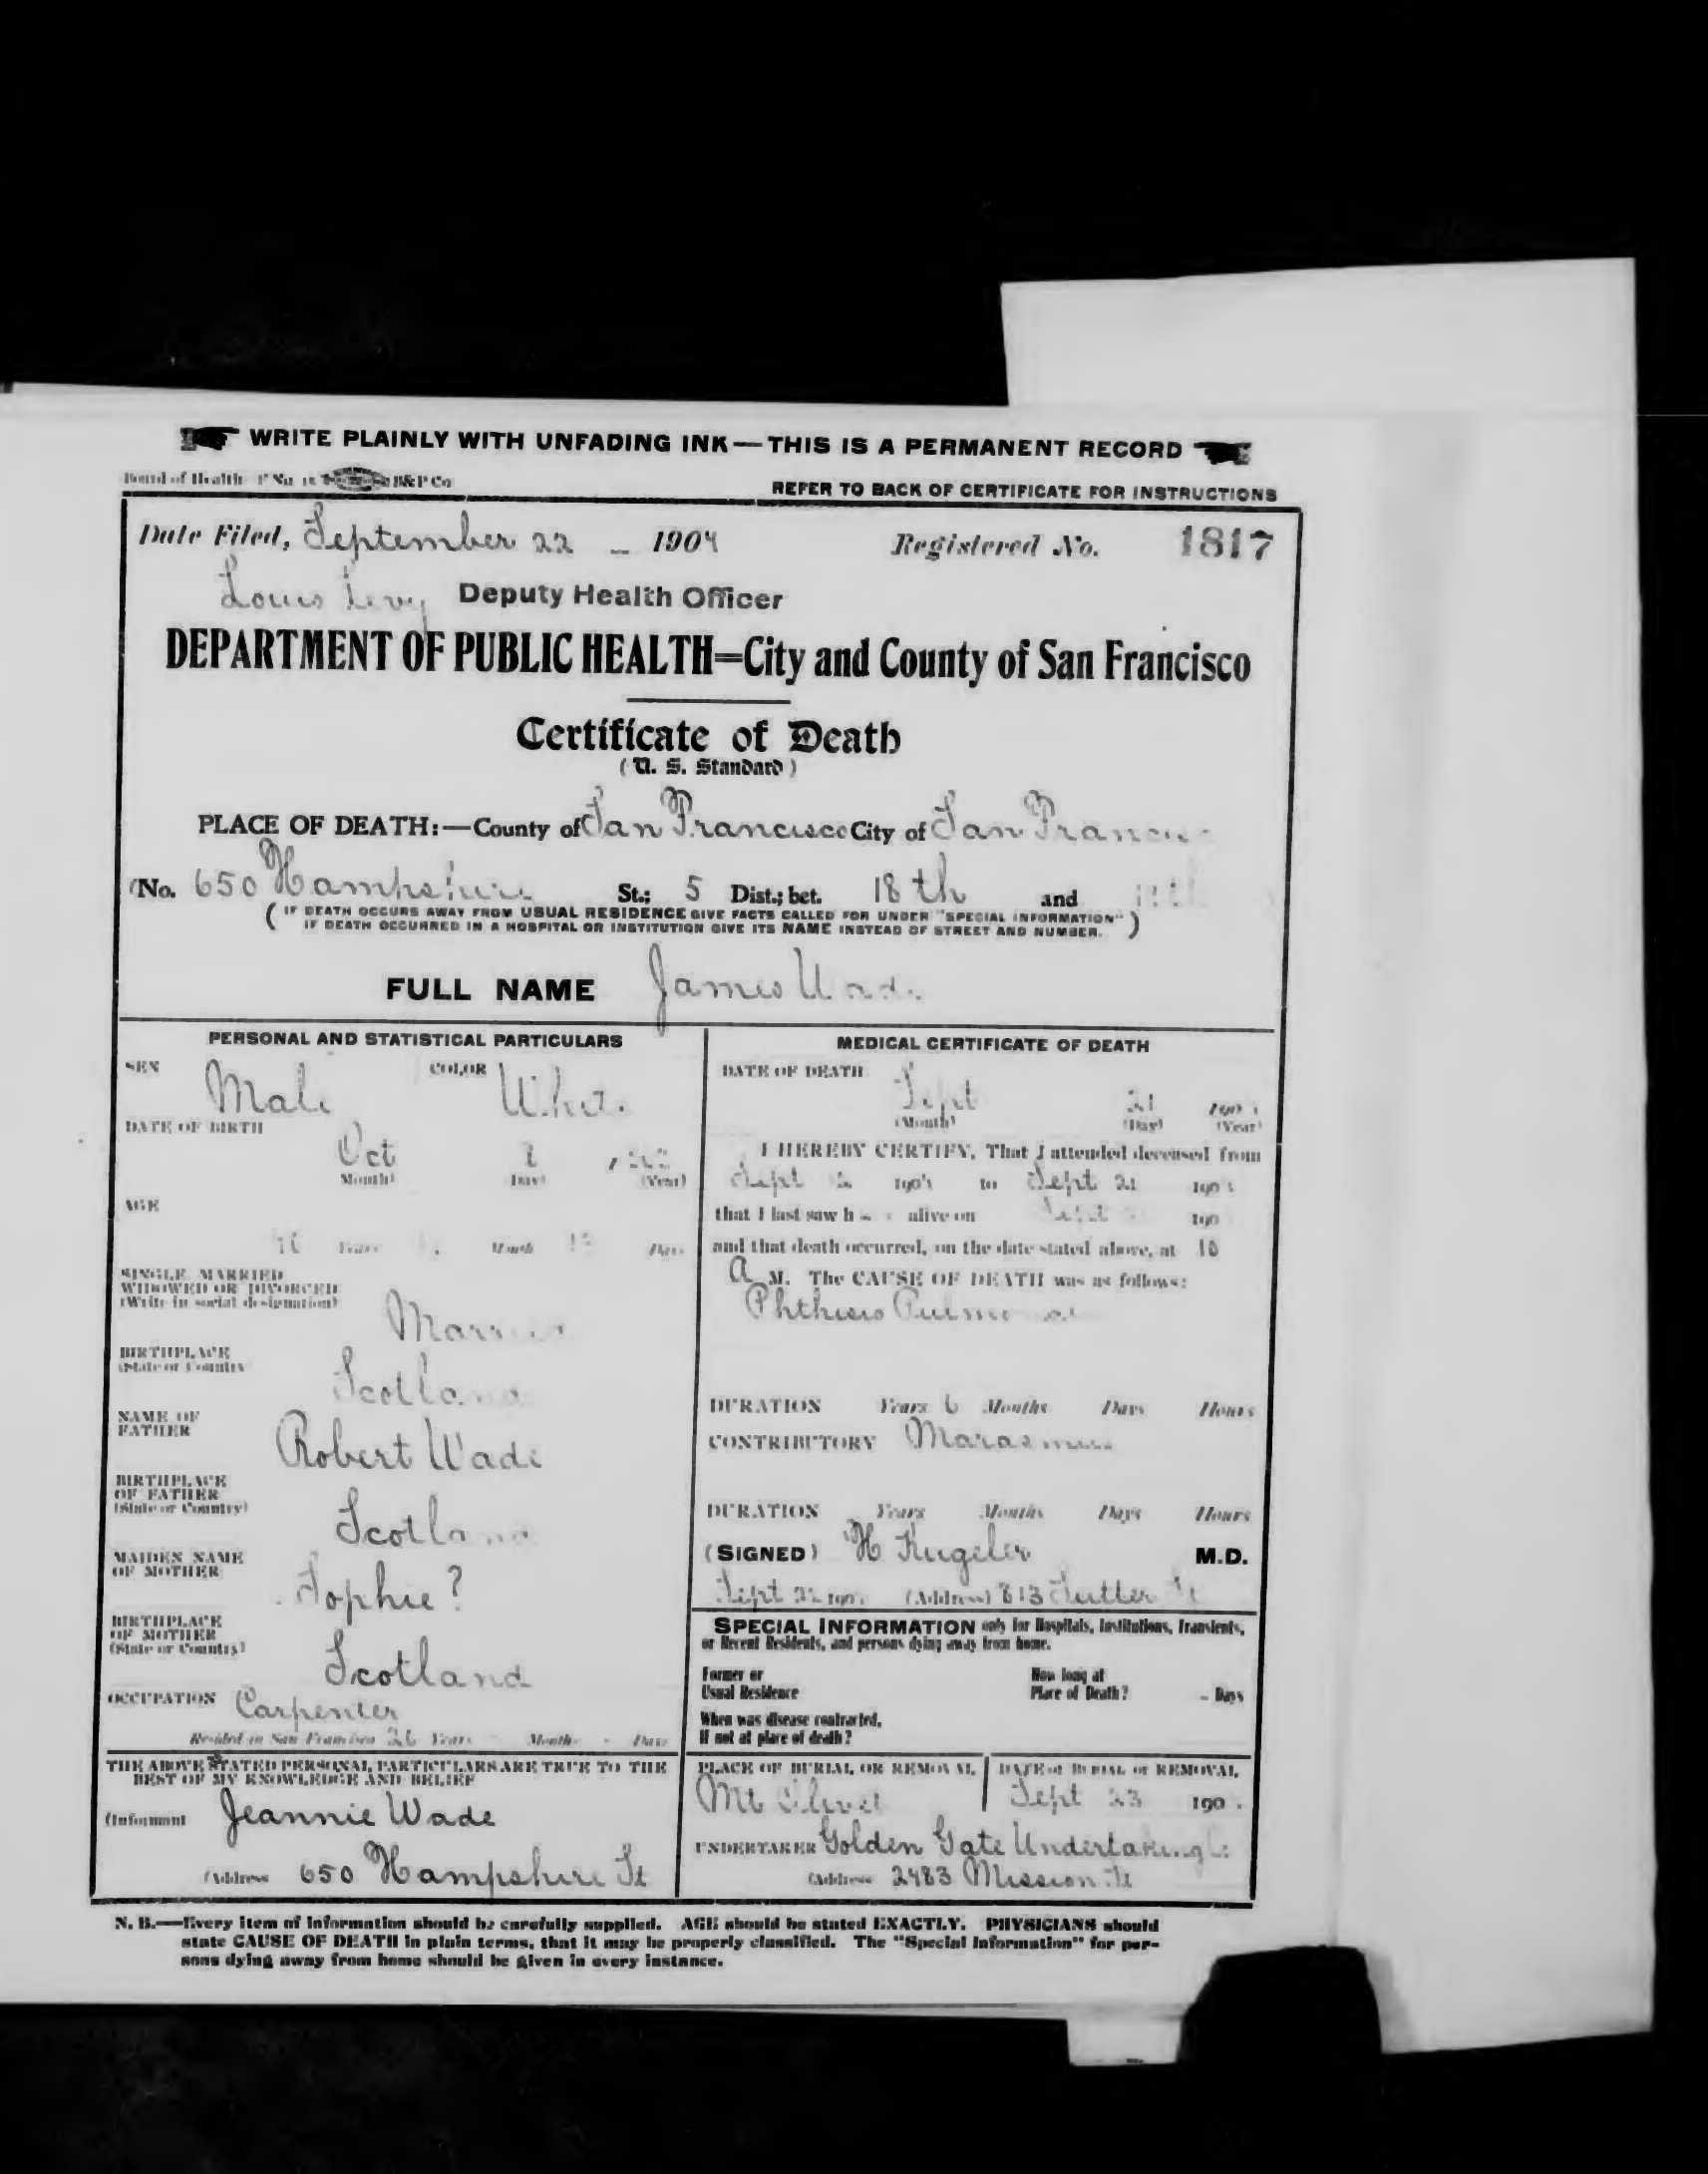 WRITE PLAINLY WITH UNFADING INK—THIS IS A PERMANENT RECORD
Board of Health B&P Co
REFER TO BACK OF CERTIFICATE FOR INSTRUCTIONS
Date Filed, September 22 - 1904 Registered No. 1817
Louis Levy Deputy Health Officer
DEPARTMENT OF PUBLIC HEALTH=City and County of San Francisco
Certificate of Death
(U. S. Standard)
PLACE OF DEATH:—County of San Francisco City of San
(No. 650 Hampshire St.; 5 Dist.; bet. 18th and
(IF DEATH OCCURS AWAY FROM USUAL RESIDENCE GIVE FACTS CALLED FOR UNDER "SPECIAL INFORMATION"
IF DEATH OCCURRED IN A HOSPITAL OR INSTITUTION GIVE ITS NAME INSTEAD OF STREET AND NUMBER.)
FULL NAME James Wade
PERSONAL AND STATISTICAL PARTICULARS
SEX Male COLOR White
DATE OF BIRTH
Oct
(Month) (Day) (Year)
AGE
Years Months Days
SINGLE, MARRIED
WIDOWED OR DIVORCED
(Write in social designation)
Married
BIRTHPLACE
(State or Country)
Scotland
NAME OF
FATHER
Robert Wade
BIRTHPLACE
OF FATHER
(State or Country)
Scotland
MAIDEN NAME
OF MOTHER
Sophie?
BIRTHPLACE
OF MOTHER
(State or Country)
Scotland
OCCUPATION Carpenter
Resided in San Francisco 26 Years - Months - Days
THE ABOVE STATED PERSONAL PARTICULARS ARE TRUE TO THE
BEST OF MY KNOWLEDGE AND BELIEF
(Informant Jeannie Wade
(Address 650 Hampshire St
MEDICAL CERTIFICATE OF DEATH
DATE OF DEATH
Sept 21 190
(Month) (Day) (Year)
I HEREBY CERTIFY, That I attended deceased from
Sept 190 to Sept 21 190
that I last saw h alive on Sept 190
and that death occurred, on the date stated above, at 10
A M. The CAUSE OF DEATH was as follows:
Phthisis
DURATION Years 6 Months Days Hours
CONTRIBUTORY Marasmus
DURATION Years Months Days Hours
(SIGNED) H Kugeler M.D.
Sept 22 190 (Address) 813 Sutter St
SPECIAL INFORMATION only for Hospitals, Institutions, Transients,
or Recent Residents, and persons dying away from home.
Former or
Usual Residence
How long at
Place of Death? - Days
When was disease contracted,
If not at place of death?
PLACE OF BURIAL OR REMOVAL
Mt Olivet
DATE of BURIAL or REMOVAL
Sept 23 190
UNDERTAKER Golden Gate Undertaking
(Address 2483 Mission St
N. B.—Every item of information should be carefully supplied. AGE should be stated EXACTLY. PHYSICIANS should
state CAUSE OF DEATH in plain terms, that it may be properly classified. The "Special Information" for per-
sons dying away from home should be given in every instance.